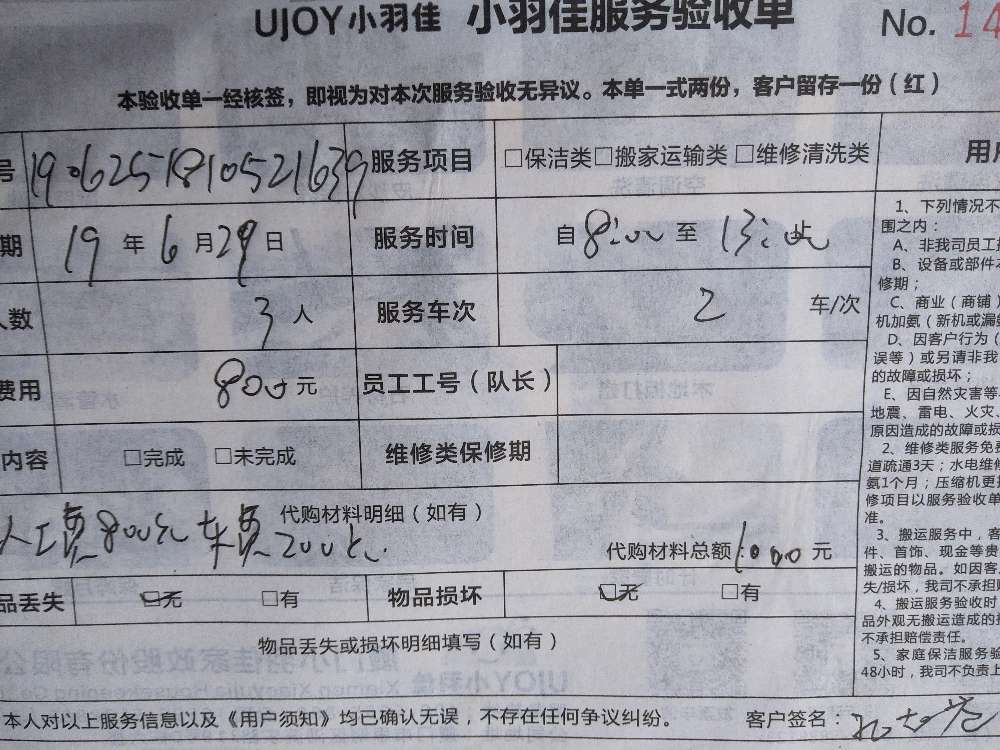 UJOY小羽佳 小羽佳服务验收单 No. 14
本验收单一经核签，即视为对本次服务验收无异议。本单一式两份，客户留存一份（红）
号 1906251810521639 服务项目 □保洁类□搬家运输类 □维修清洗类 用户
期 19 年 6 月 29 日 服务时间 自 8:00 至 13:00
人数 3 人 服务车次 2 车/次
费用 800 元 员工工号（队长）
内容 □完成 □未完成 维修类保修期
代购材料明细（如有）
人工费800元 车费200元 代购材料总额: 1000 元
品丢失 □无 □有 物品损坏 □无 □有
物品丢失或损坏明细填写（如有）
本人对以上服务信息以及《用户须知》均已确认无误，不存在任何争议纠纷。 客户签名：
1、下列情况不
围之内：
A、非我司员工
B、设备或部件本
修期；
C、商业（商铺）
机加氨（新机或漏
D、因客户行为（
误等）或另请非我
的故障或损坏；
E、因自然灾害等
地震、雷电、火灾、
原因造成的故障或损
2、维修类服务免费
道疏通3天；水电维修
氨1个月；压缩机更换
修项目以服务验收单
准。
3、搬运服务中，客
件、首饰、现金等贵
搬运的物品。如因客
失/损坏，我司不承担
4、搬运服务验收时
品外观无搬运造成的
不承担赔偿责任。
5、家庭保洁服务验
48小时，我司不负责上